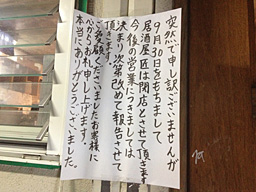 突然で申し訳ございませんが
9月30日をもちまして
居酒屋匠は閉店とさせて頂きます
今後の営業につきましては
決まり次第改めて報告させて
頂きます。
ご愛顧くださいましたお客様に
心からお礼申し上げます。
本当にありがとうございました。